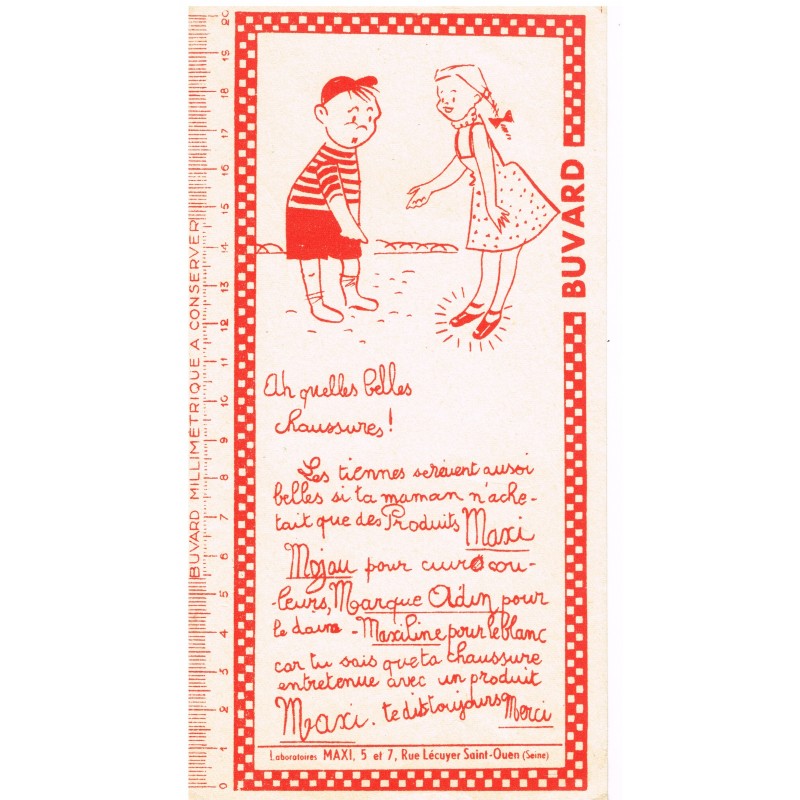 BUVARD MILLIMÉTRIQUE A CONSERVER
0 1 2 3 4 5 6 7 8 9 10 11 12 13 14 15 16 17 18 19 20
BUVARD
Ah quelles belles
chaussures!
Les tiennes seraient aussi
belles si ta maman n'ache-
tait que des Produits Maxi
Mojau pour cuirs cou-
-leurs, Marque Adin pour
le daim - Maxiline pour le blanc
car tu sais que ta chaussure
entretenue avec un produit
Maxi. te dit toujours Merci
Laboratoires MAXI, 5 et 7, Rue Lécuyer Saint-Ouen (Seine)